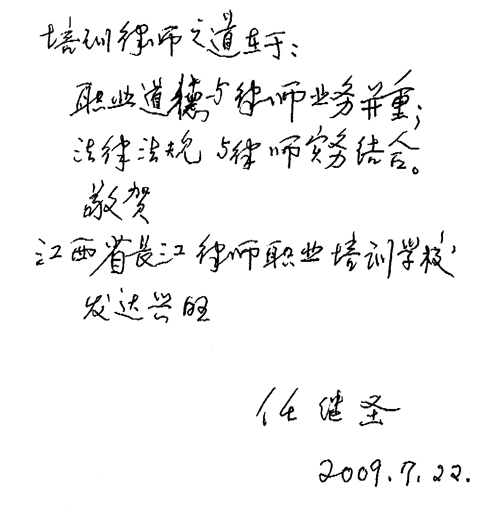 培训律师之道在于：
职业道德与律师业务并重；
法律法规与律师实务结合。
敬贺
江西省長江律师职业培训学校
发达兴旺
任继圣
2009.7.22.